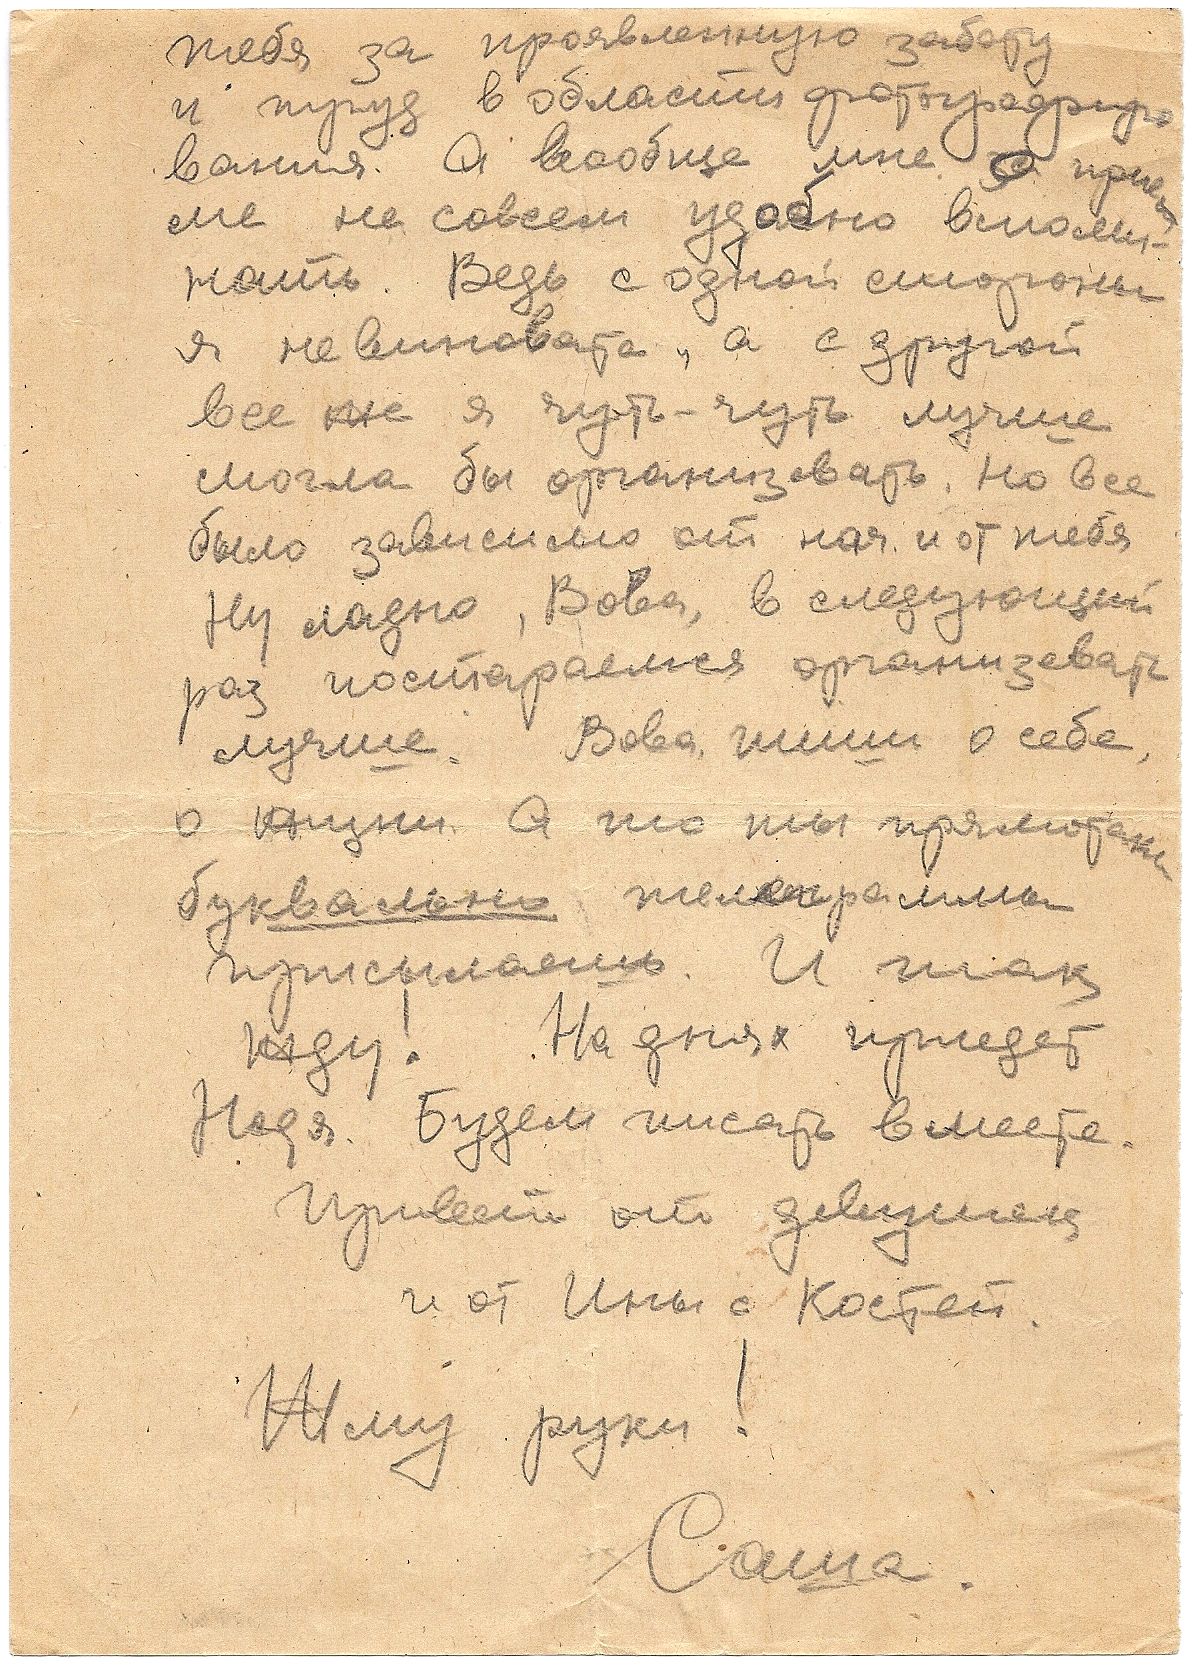 тебя за проявленную заботу
и труд в области фотографиро
вания. А вообще мне о прие
ме не совсем удобно вспоми-
нать. Ведь с одной стороны
я не виновата, а с другой
все же я чуть-чуть лучше
смогла бы организовать. Но все
было зависимо от нач. и от тебя
Ну ладно, Вова, в следующий
раз постараемся организовать
лучше. Вова, пиши о себе,
о жизни. А то ты прямотаки
буквально телеграммы
присылаешь. И так
жду! На днях приедет
Надя. Будем писать вместе.
Привет от девушек
и от Ины с Костей.
Жму руки!
Саша.